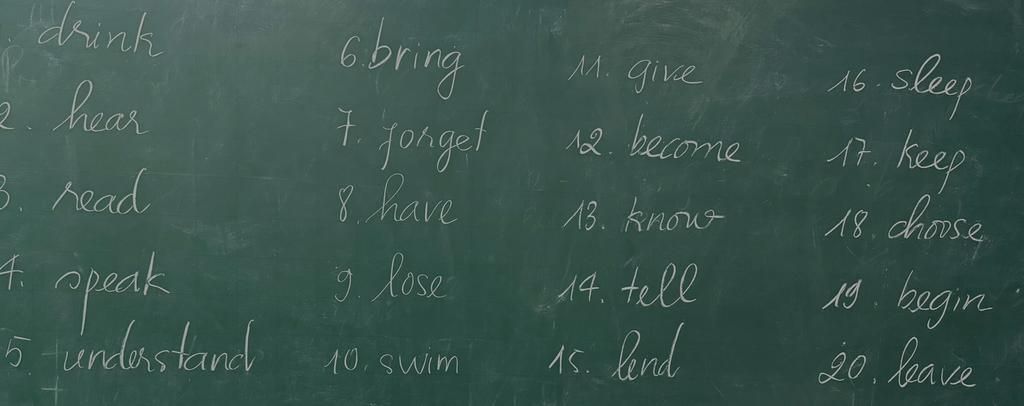 . drink
2. hear
3. read
4. speak
5. understand
6. bring
7. forget
8. have
9. lose
10. swim
11. give
12. become
13. know
14. tell
15. lend
16. sleep
17. keep
18. choose
19. begin
20. leave